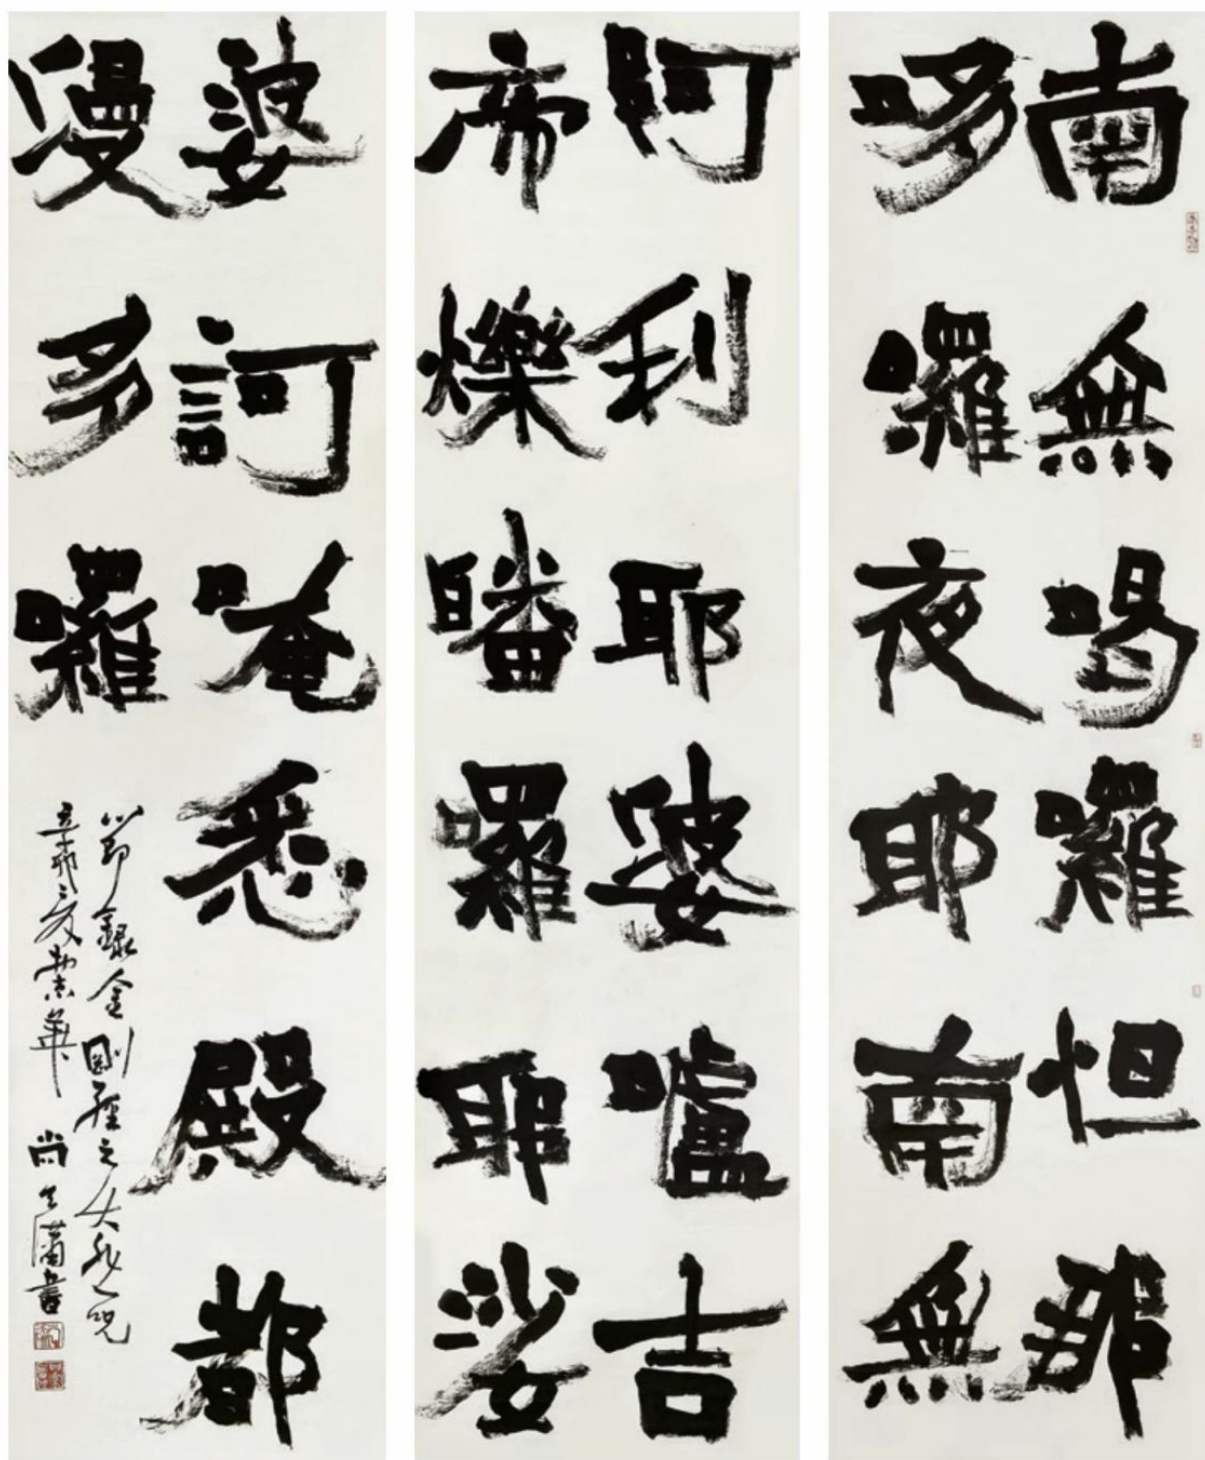 南無喝囉怛那
哆囉夜耶南無
阿利耶婆嚧吉
帝爍皤囉耶娑
婆訶唵悉殿都
僈多囉
節錄金剛經之大悲咒
辛卯之夏
尚
書